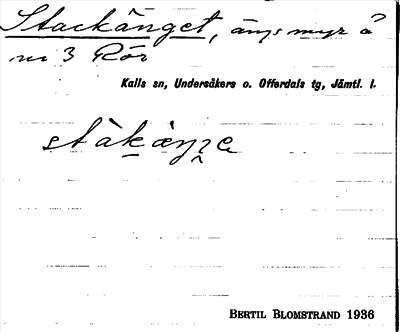 Stackänget, ängsmyr å
nr 3 Rör
Kalls sn, Undersåkers o. Offerdals tg, Jämtl. l.
BERTIL BLOMSTRAND 1936